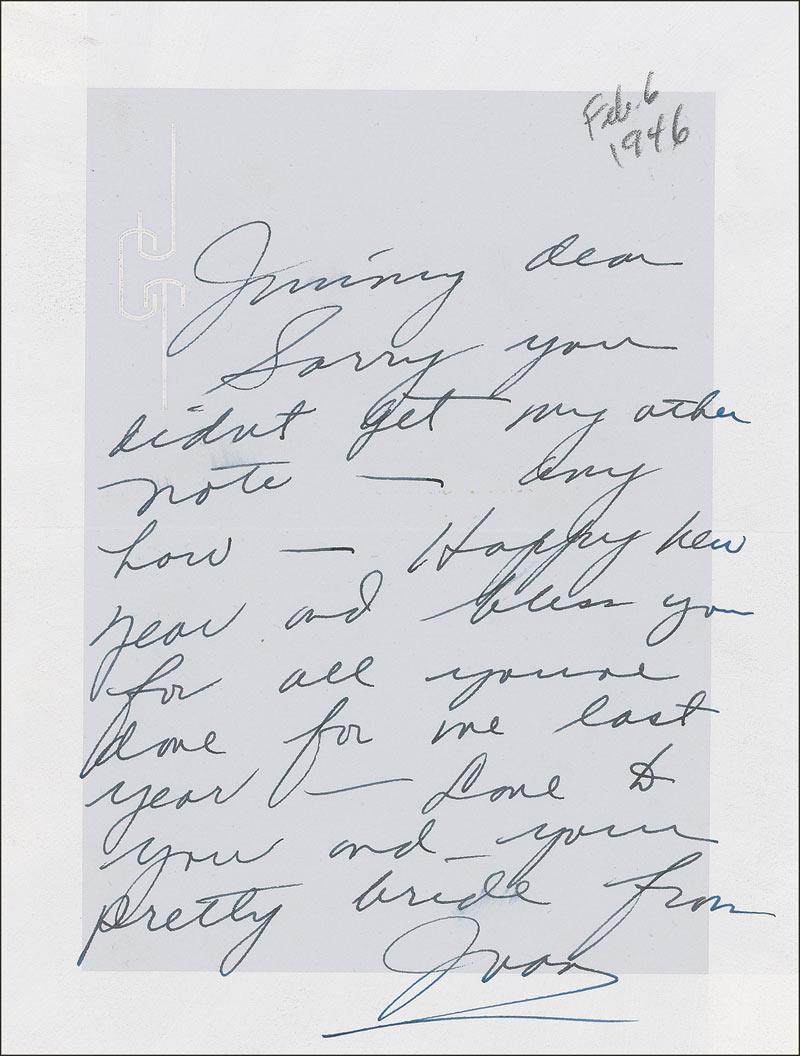 Feb. 6
1946
Jimmy dear
Sorry you
didn't get my other
note — any
how — Happy new
year and bless you
for all youve
done for me last
year — Love to
you and your
pretty bride from
Joan